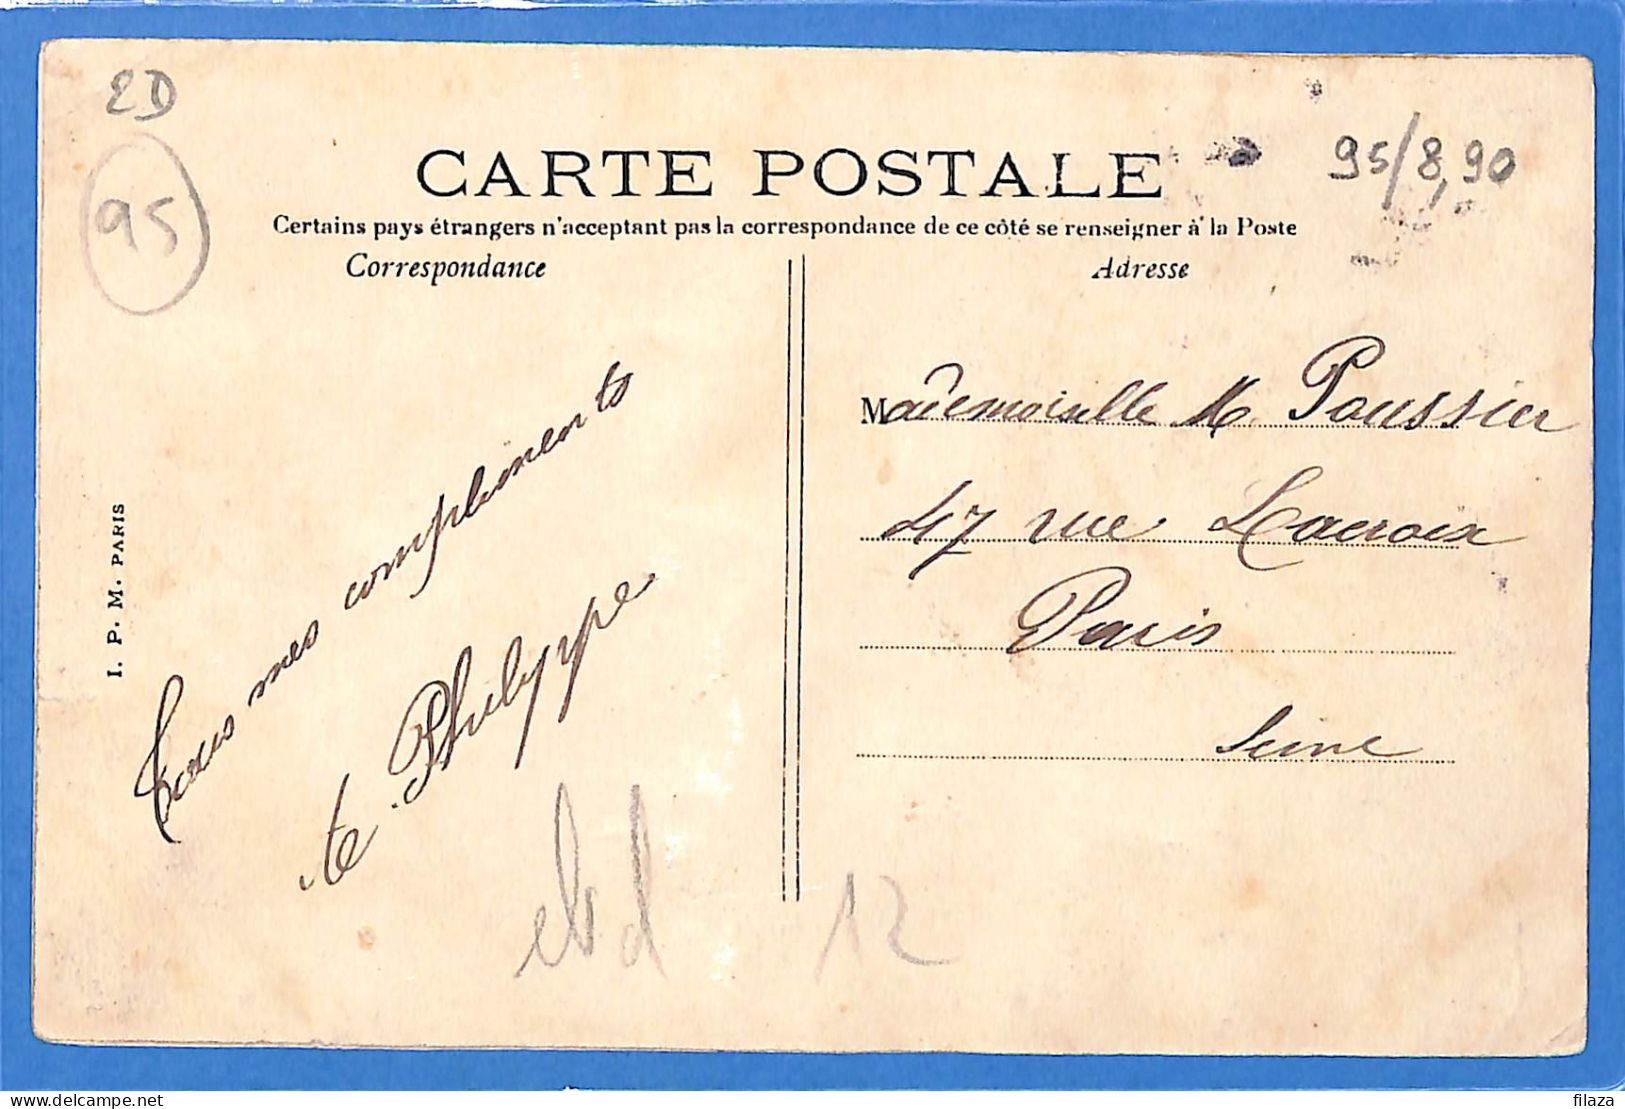 ED
95
CARTE POSTALE
95/8,90
Certains pays étrangers n'acceptant pas la correspondance de ce côté se renseigner à la Poste
Correspondance
Adresse
I. P. M. PARIS
Tous mes compliments
te Philyppe
Mademoiselle M. Poussier
47 rue Lacroix
Paris
Seine
12
delcampe.net
filaza